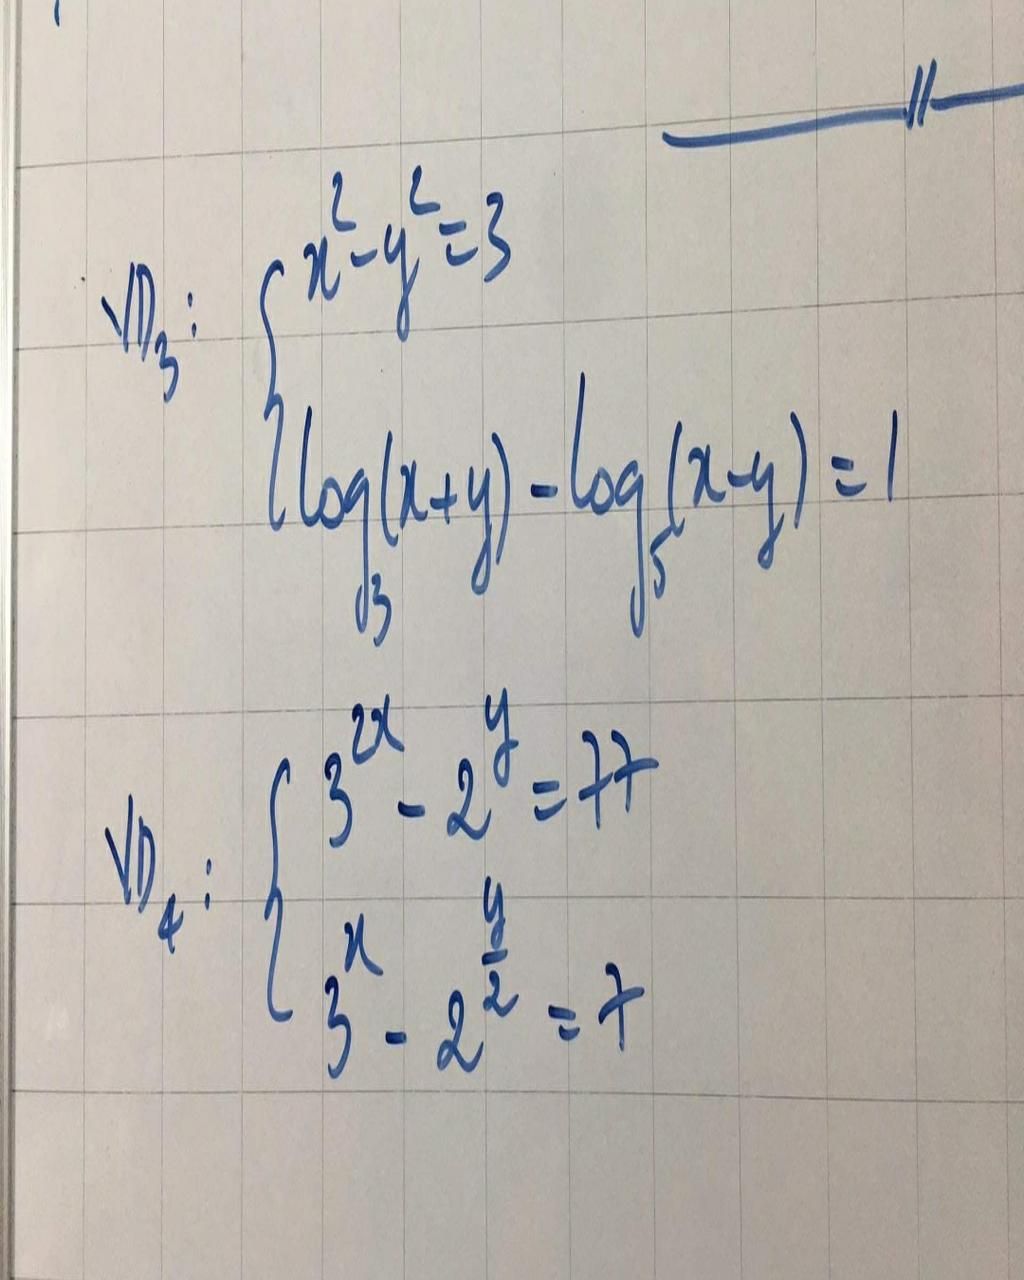 VD₃: { x² - y² = 3
log₃(x+y) - log₅(x-y) = 1
VD₄: { 3²ˣ - 2^y = 77
3ˣ - 2^(y/2) = 7